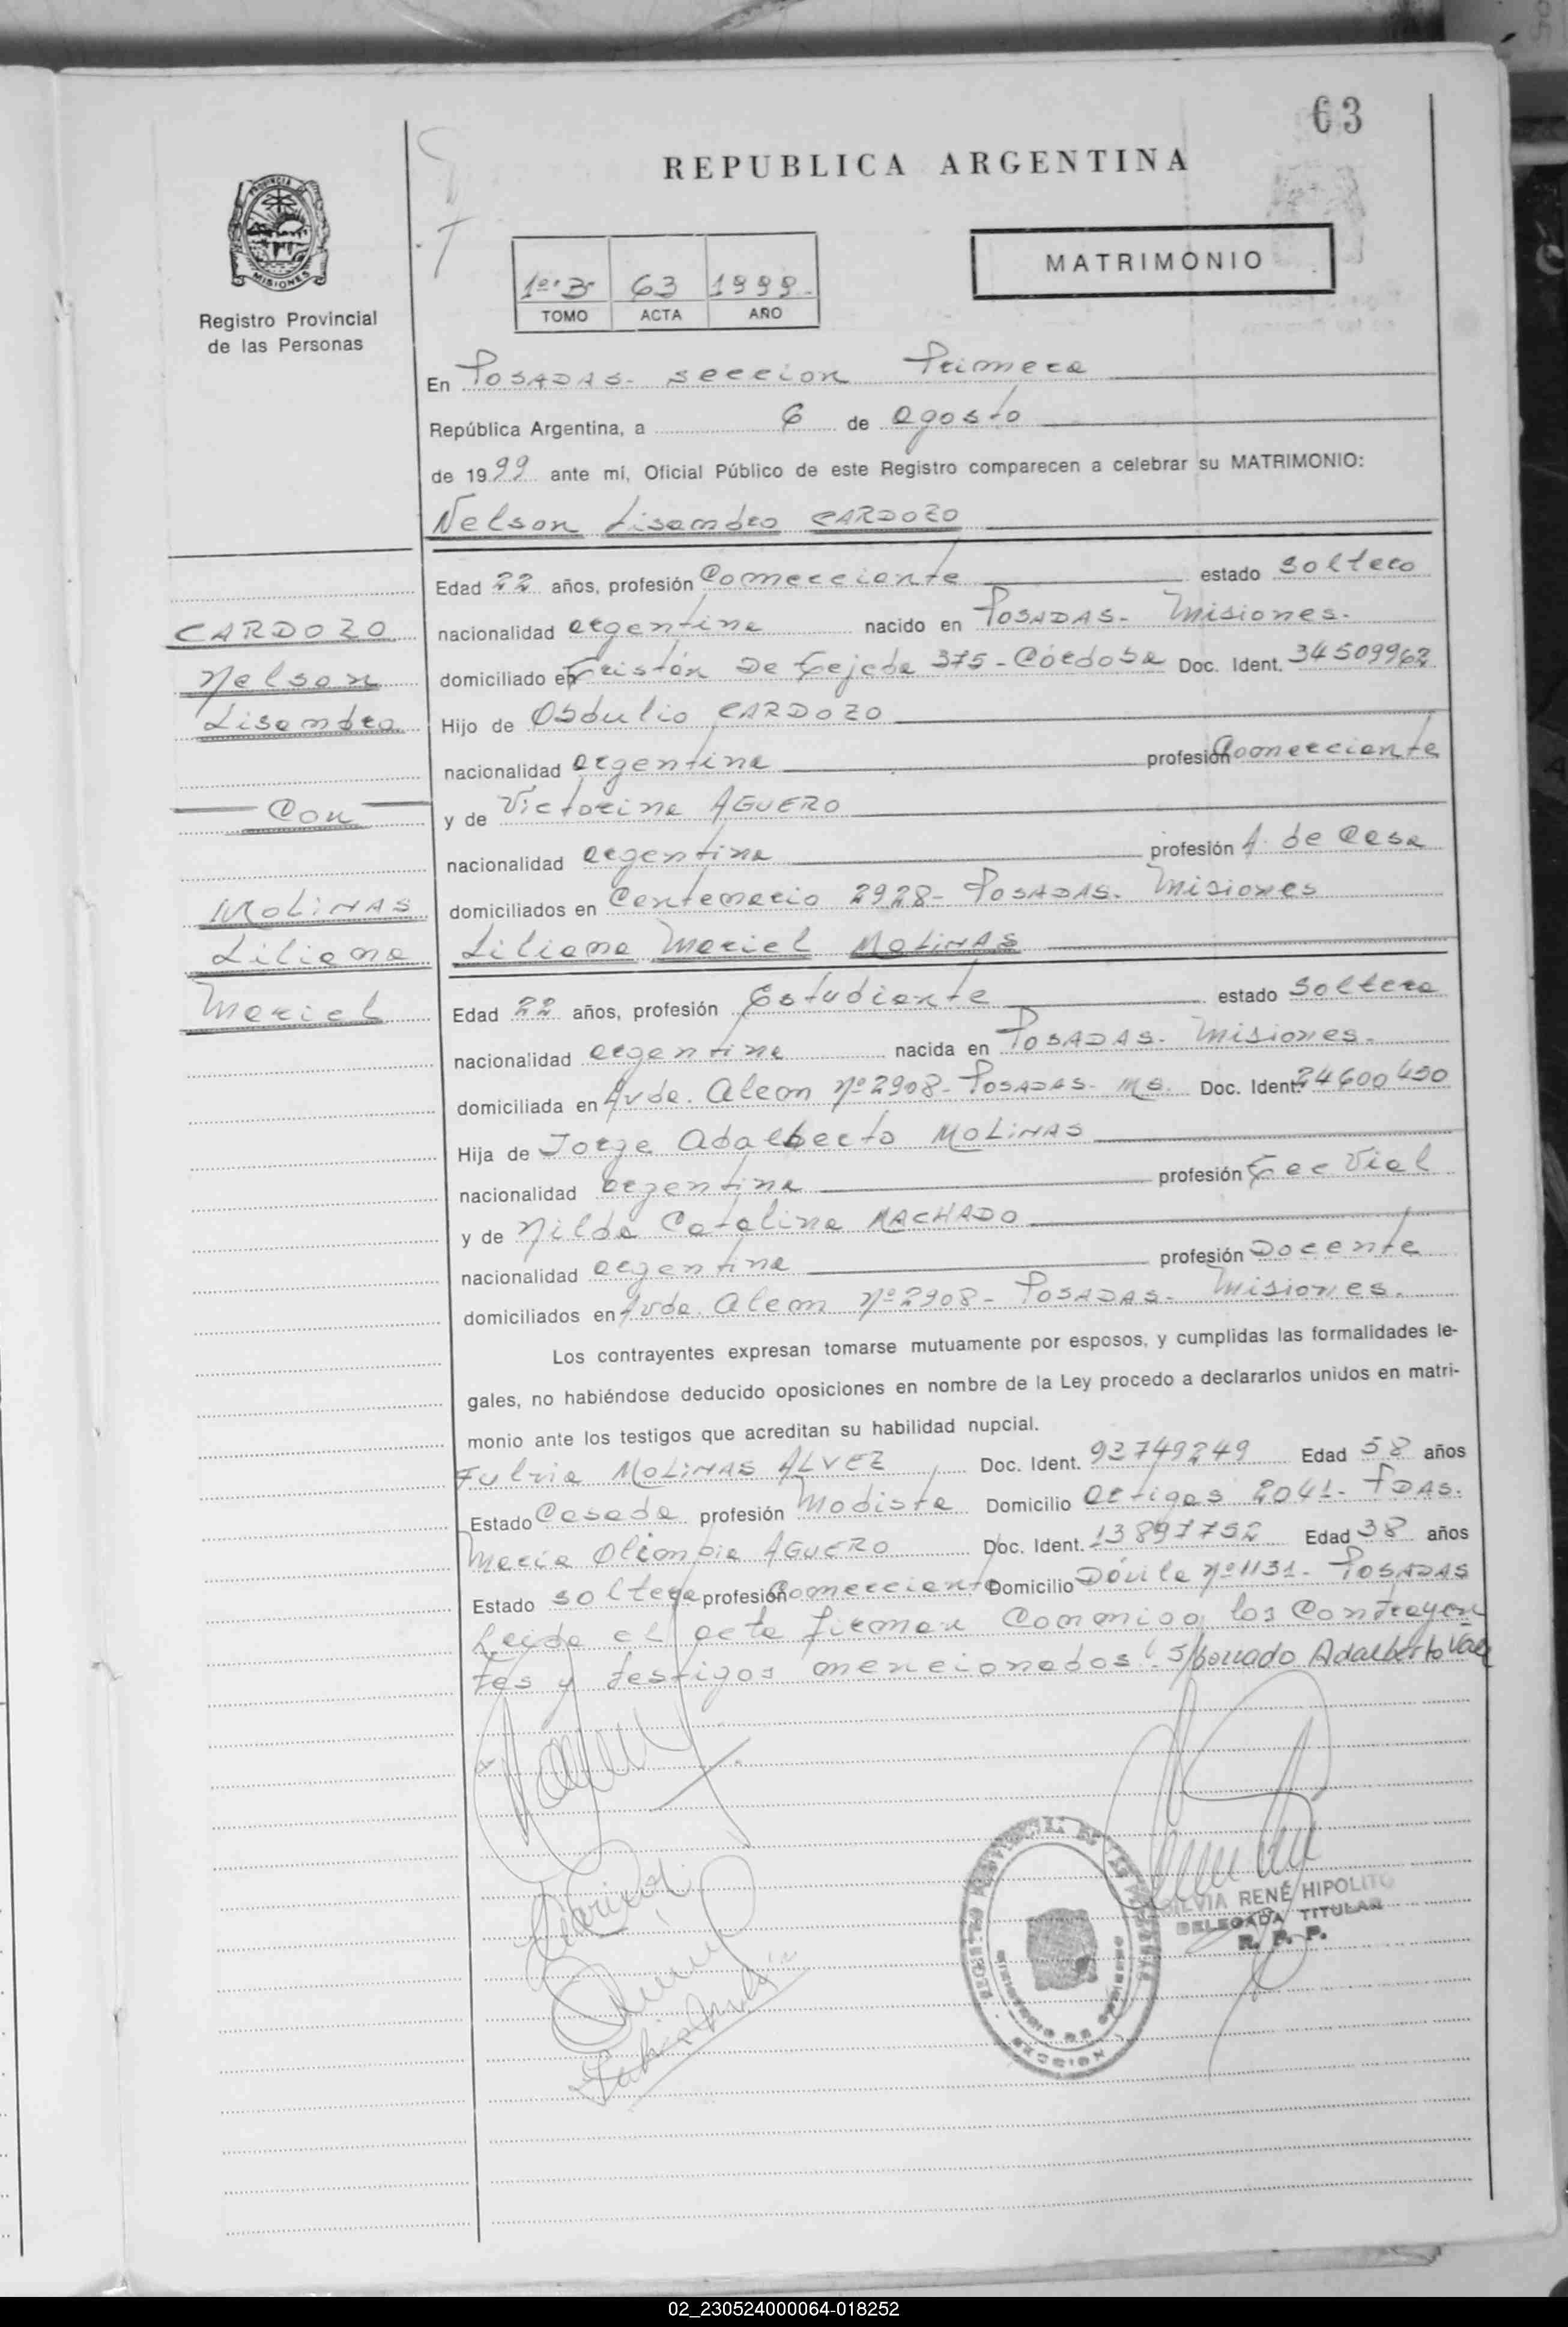 63
REPUBLICA ARGENTINA
MATRIMONIO
PROVINCIA DE
MISIONES
Registro Provincial
de las Personas
1º-B- 63 1999-
TOMO ACTA AÑO
En POSADAS- seccion Primera
República Argentina, a 6 de agosto
de 1999 ante mi, Oficial Público de este Registro comparecen a celebrar su MATRIMONIO:
Nelson Lisandro CARDOZO
Edad 22 años, profesión Comerciante estado soltero
nacionalidad argentina nacido en POSADAS- Misiones-
domiciliado en Tristón De Tejeda 375- Córdoba Doc. Ident. 34509962
Hijo de Obdulio CARDOZO
nacionalidad argentina profesión Comerciante
y de Victorina AGUERO
nacionalidad argentina profesión A. de Casa
domiciliados en Centenario 2928- POSADAS- Misiones
Liliana Mariel MOLINAS
Edad 22 años, profesión Estudiante estado soltera
nacionalidad argentina nacida en POSADAS- Misiones-
domiciliada en Avda. Alem nº2908- POSADAS- Ms. Doc. Ident. 24600450
Hija de Jorge Adalberto MOLINAS
nacionalidad argentina profesión Tec Vial
y de Nilda Catalina MACHADO
nacionalidad argentina profesión Docente
domiciliados en Avda. Alem nº2908- POSADAS- Misiones.
Los contrayentes expresan tomarse mutuamente por esposos, y cumplidas las formalidades le-
gales, no habiéndose deducido oposiciones en nombre de la Ley procedo a declararlos unidos en matri-
monio ante los testigos que acreditan su habilidad nupcial.
Fulvia MOLINAS ALVEZ Doc. Ident. 92749249 Edad 58 años
Estado Casada profesión Modista Domicilio Artigas 2041- PDAS.
Maria Olimpia AGUERO Doc. Ident. 13897752 Edad 38 años
Estado soltera profesión Comerciante Domicilio Dávila nº1131- POSADAS
Leida el acta firman conmigo los Contrayen
tes y testigos mencionados- S/borrado Adalberto Vale
CARDOZO
Nelson
Lisandro
Con
MOLINAS
Liliana
Mariel
SILVIA RENÉ HIPOLITO
DELEGADA TITULAR
R. P. P.
02_230524000064-018252